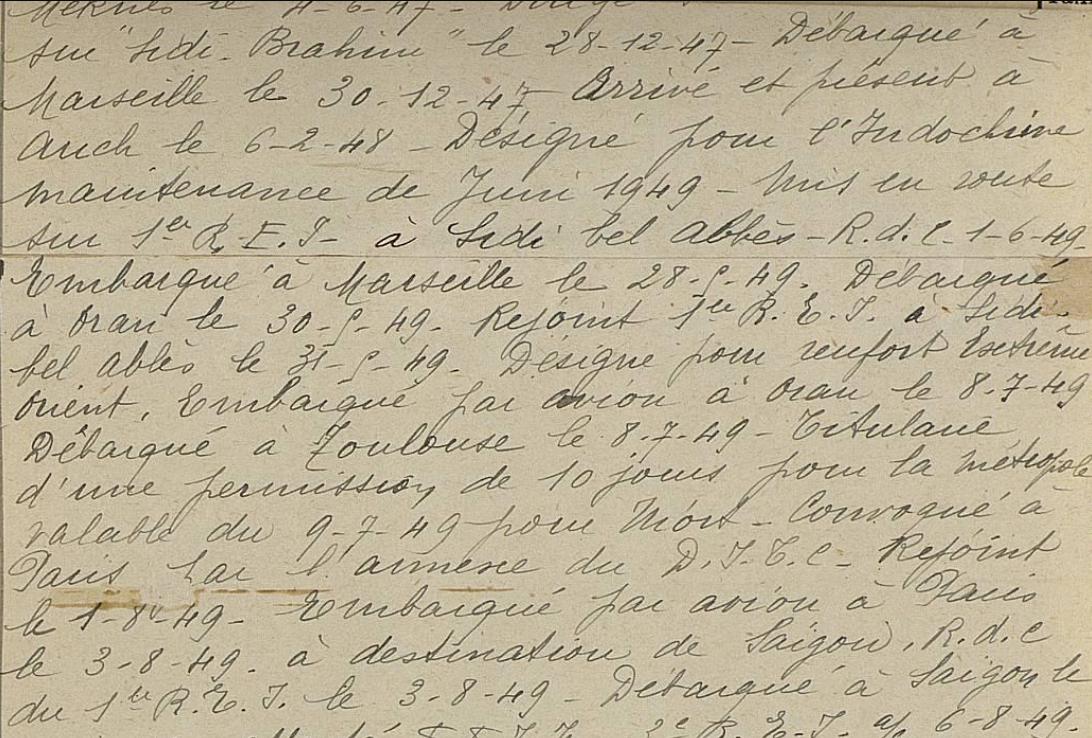 Meknès le 4-6-47- Dirigé
sur "Sidi-Brahim" le 28-12-47- Débarqué à
Marseille le 30-12-47 Arrivé et présent à
Auch le 6-2-48 - Désigné pour l'Indochine
maintenance de Juin 1949 - Mis en route
sur 1er R.E.I- à Sidi bel abbès - R.d.C-1-6-49
Embarqué à Marseille le 28-5-49. Débarqué
à Oran le 30-5-49. Rejoint 1er R.E.I. à Sidi-
bel abbès le 31-5-49. Désigné pour renfort Extrême
Orient, Embarqué par avion à Oran le 8-7-49
Débarqué à Toulouse le 8-7-49- Titulaire
d'une permission de 10 jours pour la métropole
valable du 9-7-49 pour Niort- Convoqué à
Paris par l'annexe du D.I.T.C- Rejoint
le 1-8-49- Embarqué par avion à Paris
le 3-8-49. à destination de Saigon, R.d.C
du 1er R.E.I. le 3-8-49- Débarqué à Saigon le
2e R.E.I. 6-8-49.